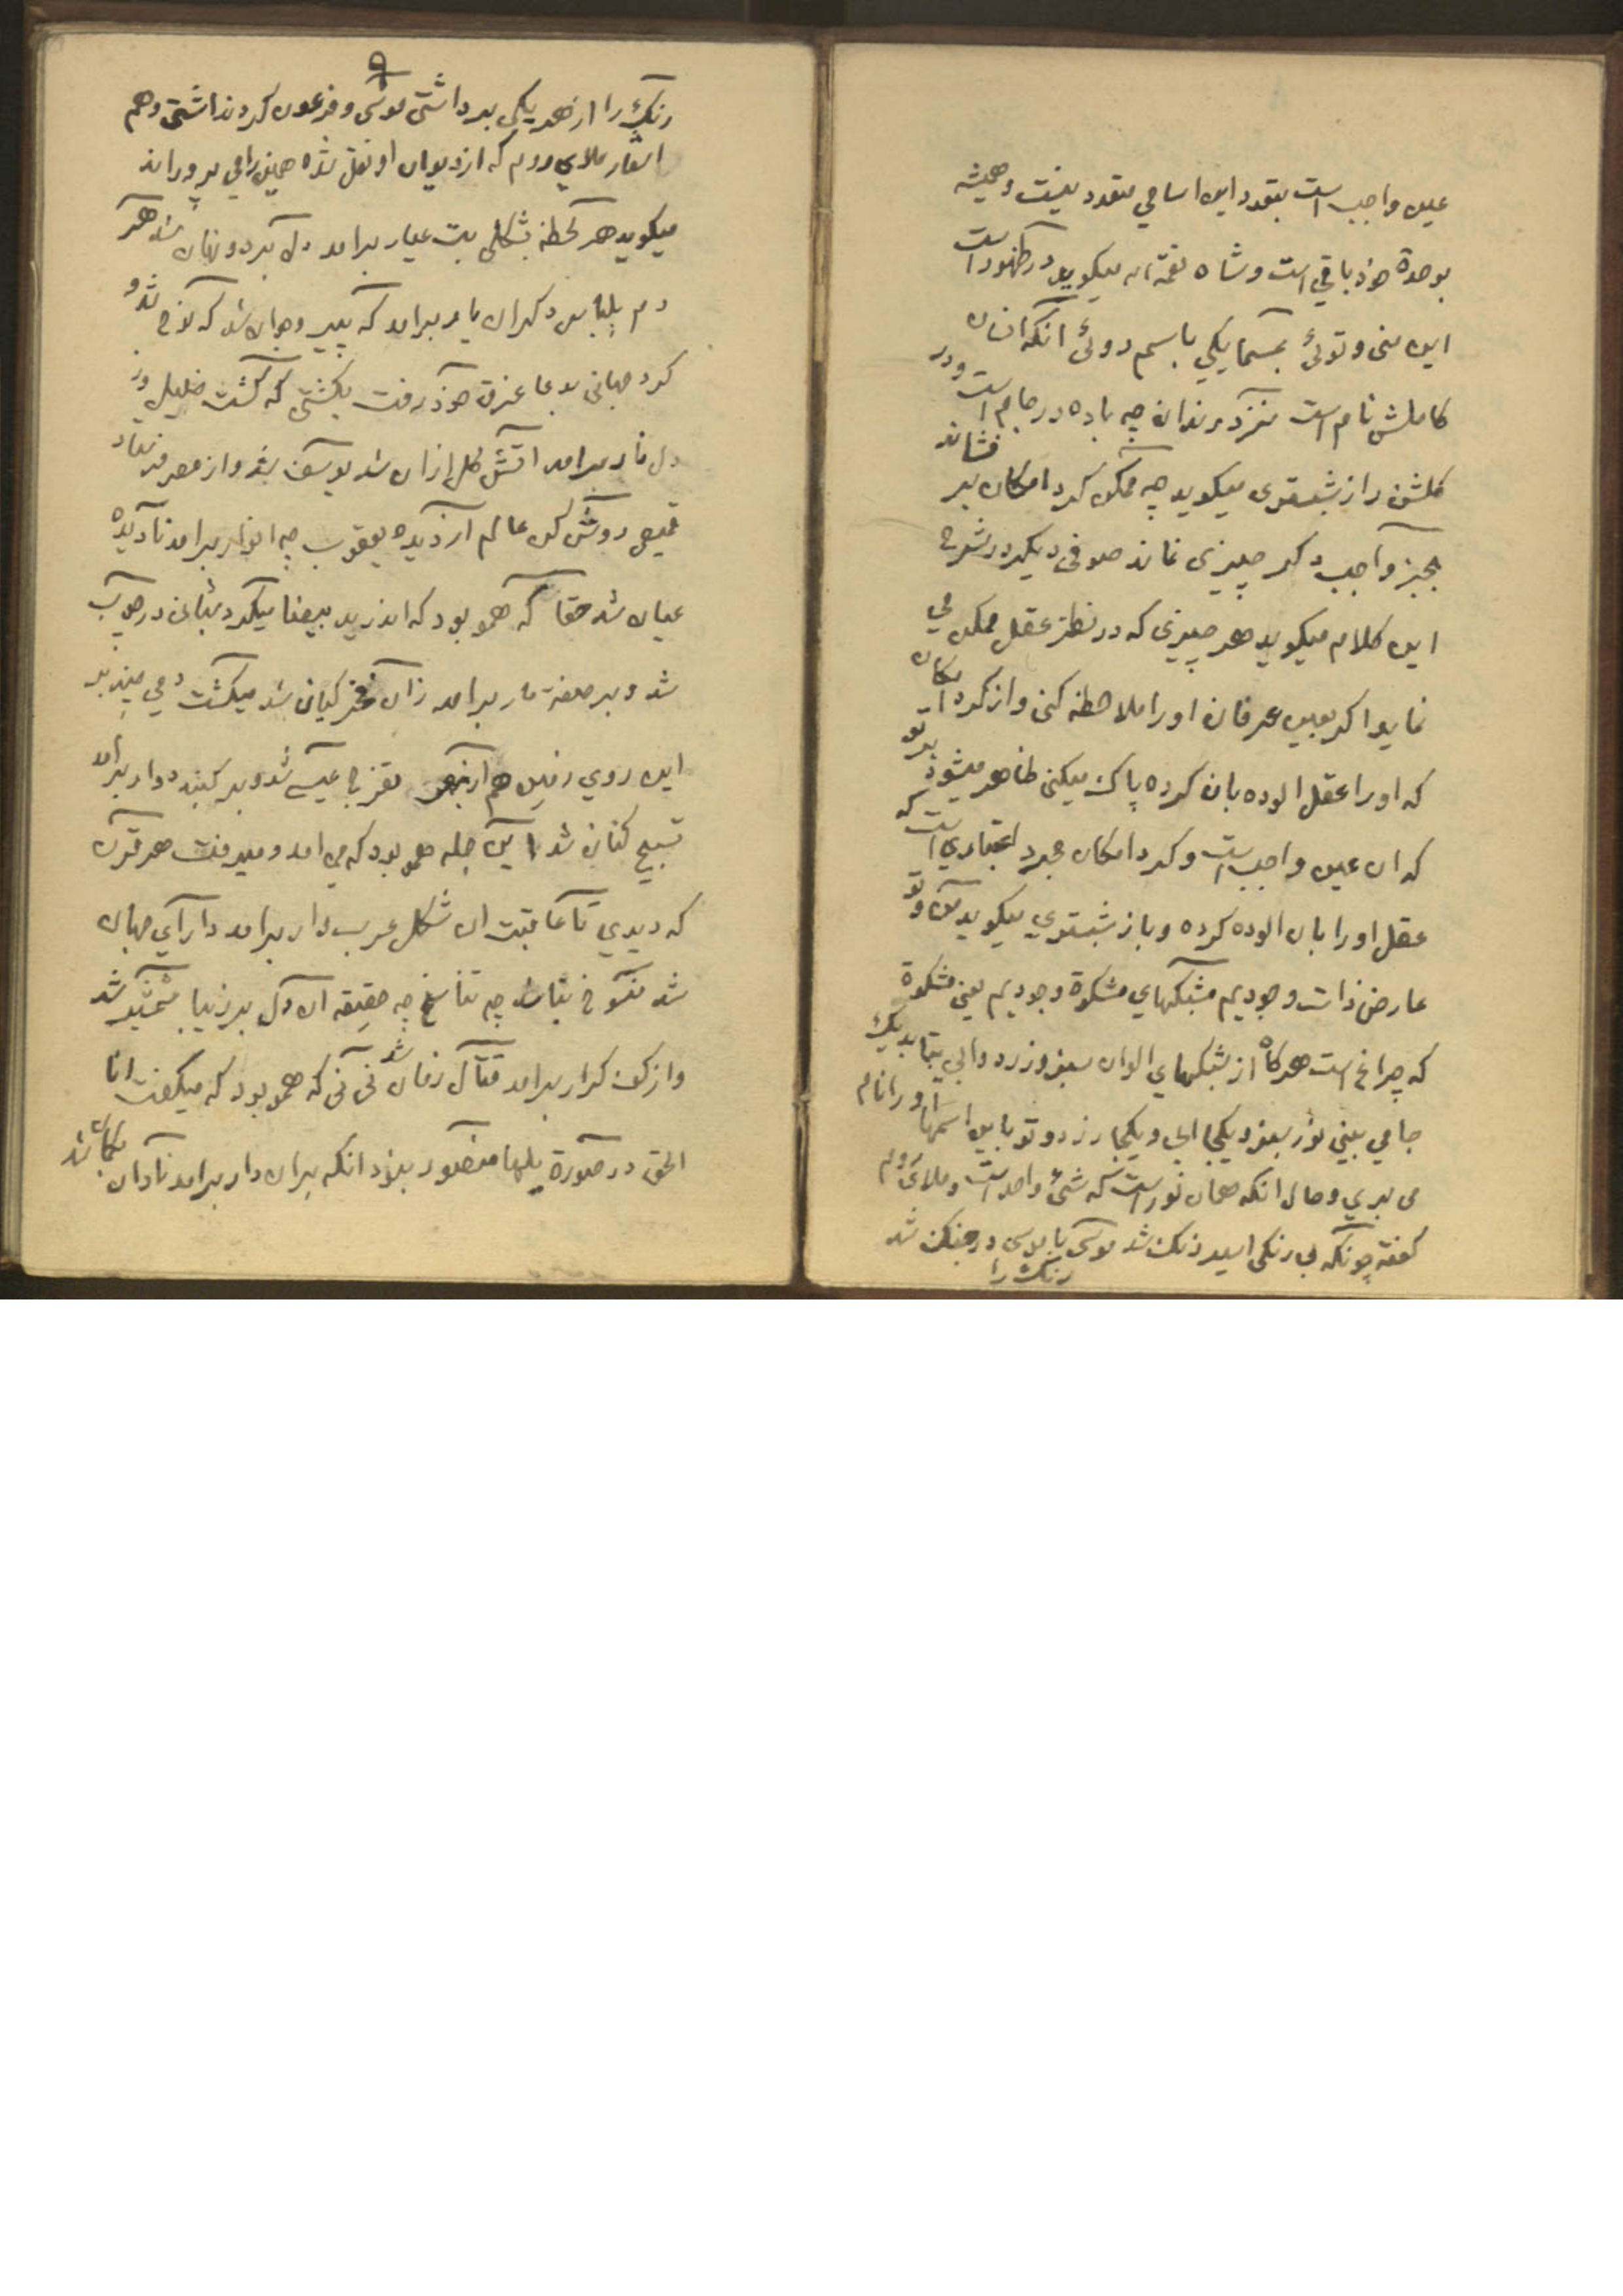 عین واجب است بتعدد این اسامی متعدد نیست و همیشه
بوحدة خود باقی است و شاه نعمة اله میگوید در ظهور است
این منی و توئی بمسما یکی باسم دوئی آنکه انسان
کاملش نام است نزد رندان چه باده در جام است و در
کلشن راز شبستری میگوید چه ممکن کرد امکان بر فشاند
بجز واجب دکر چیزی نماند صوفی دیکر در شرح
این کلام میگوید هر چیزی که در نظر عقل ممکن می
نماید اکر بعین عرفان او را ملاحظه کنی و از کرد امکان
که او را عقل الوده بان کرده پاک میکنی ظاهر میشود بر تو
که ان عین واجب است و کرد امکان مجرد اعتباری است که
عقل او را بان الوده کرده و باز شبستری میکوید من و تو
عارض ذات وجودیم مشبکهای مشکوة وجودیم یعنی مشکوة
که چراغ است هرکاه از شبکهای الوان سبز و زرد و ابی بتابد یک
جا می بینی نور سبز و یکجا ابی و یکجا زرد و تو باین اسمها او را نام
می بری و حال انکه همان نور است که شئ واحد است و ملای روم
کفته چونکه بی رنکی اسیر رنک شد موسی با موسی در جنک شد
رنک را
۹
رنک را از هر یکی برداشتی موسی و فرعون کرد نداشتی و هم
اشعار ملای روم که از دیوان او نقل شده همین را می پروراند
میکوید هر لحظه بشکلی بت عیار برامد دل برد و نهان شد هر
دم بلباس دکر ان یار برامد که پیر و جوان شد که نوح شد و
کرد جهانی بدعا غرق خود رفت بکشتی که کشت خلیل و ز
دل نار برامد اتش کل ازان شد یوسف شد و از مصر فرستاد
قمیص روشن کن عالم از دیده یعقوب چه انوار برامد تا دیده
عیان شد حقا که همو بود که اندر ید بیضا میکرد شبانی در چوب
شد و بر صفت مار برامد زان فخر کیان شد میکشت دمی چند بر
این روی زمین هم از بهر تفرج عیسی شد و بر کنبد دوار برامد
تسبیح کنان شد این جمله همو بود که می امد و میرفت هر قرن
که دیدی تا عاقبت ان شکل عرب وار برامد دارای جهان
شد منسوخ نباشد چه تناسخ چه حقیقه ان دلبر زیبا شمشیر شد
و از کف کرار برامد قتال زمان شد نی نی که همو بود که میکفت انا
الحق در صورة بلها منصور نبود انکه بران دار برامد نادان بکمان شد